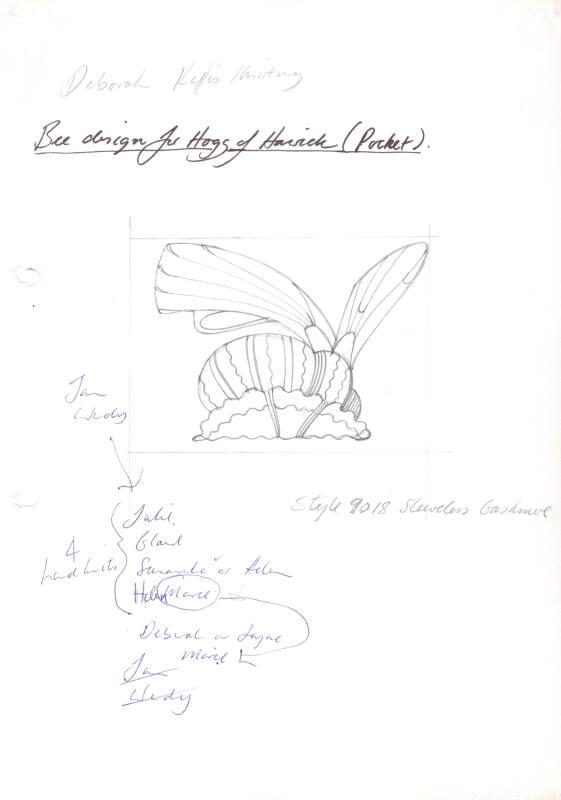 Deborah Knitting
Bee design for Hogg of Hawick (Pocket).
Jan
Wendy
Style 9018 Sleeveless Cashmere
Julie
4
or Helen
hand knits
Marie
Deborah or Jayne
Marie
Jan
Wendy